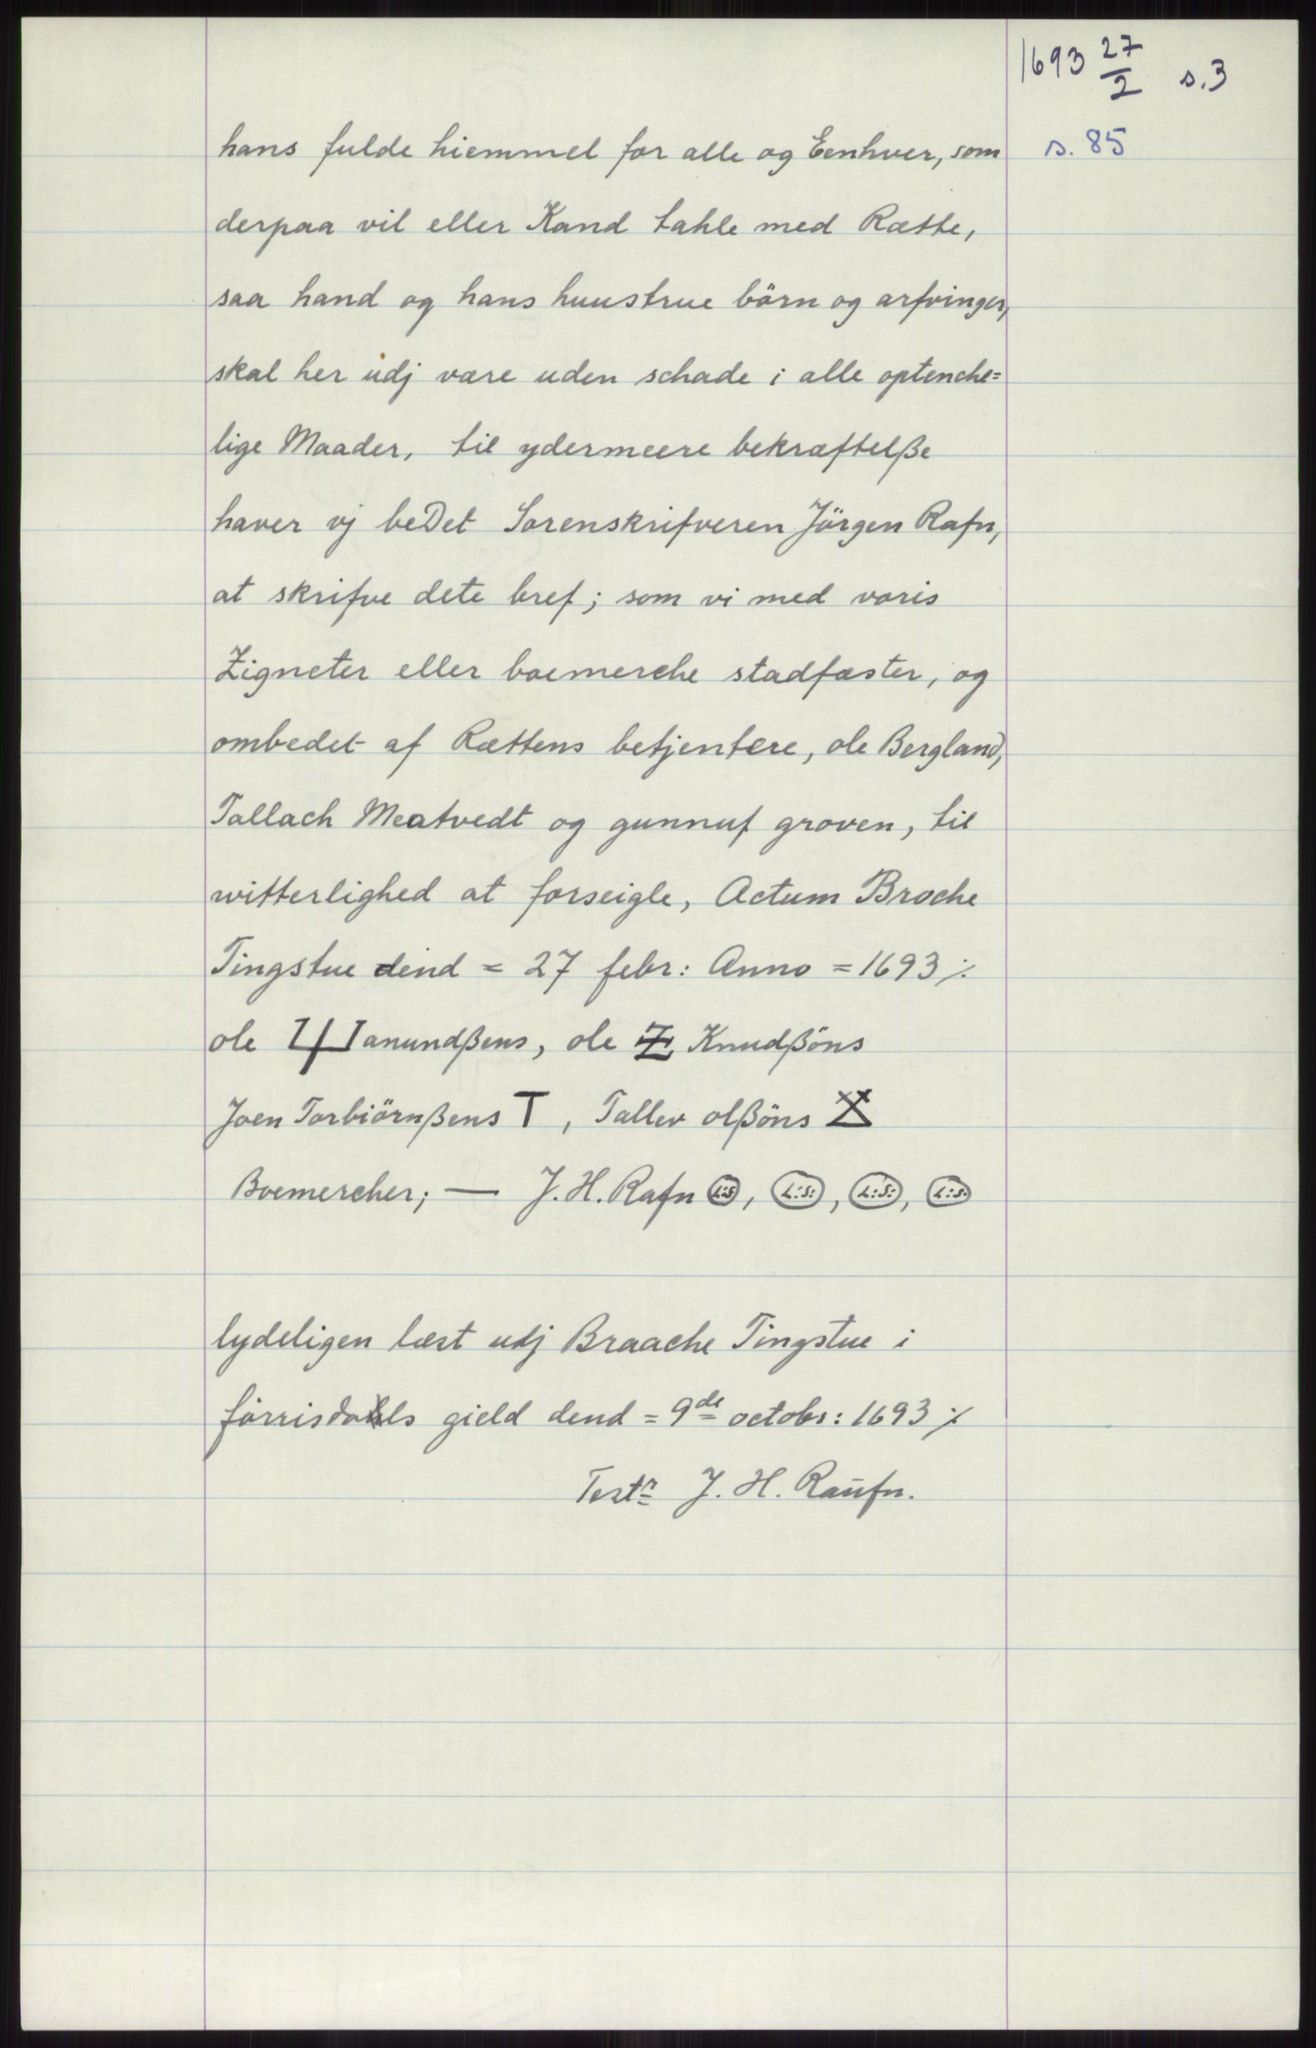 1693 27/2 s.3
s. 85
hans fulde hiemmel for alle og Eenhver, som
derpaa vil eller Kand tahle med Rætte,
saa hand og hans huustrue börn og arfvinger,
skal her udj være uden schade i alle optenche=
lige Maader, til ydermeere bekræftelße
haver vj beDet Sorenskrifveren Jörgen Rafn,
at skrifve dete bref; som vi med voris
Zigneter eller boemerche stadfæster, og
ombedet af Rættens betjentere, ole Bergland,
Tallach Meatvedt og gunnuf groven, til
witterlighed at forseigle, Actum Broche
Tingstue dend = 27 febr: Anno = 1693 ٪
ole anundßens, ole Knudßöns
Joen Torbiörnßens T, Tallev olßöns
Boemercher; — J. H. Rafn L:S, L:S:, L:S:, L:S:
lydeligen læst udj Braache Tingstue i
förrisdahls gield dend = 9de octobr: 1693 ٪
Test: J. H. Raufn.